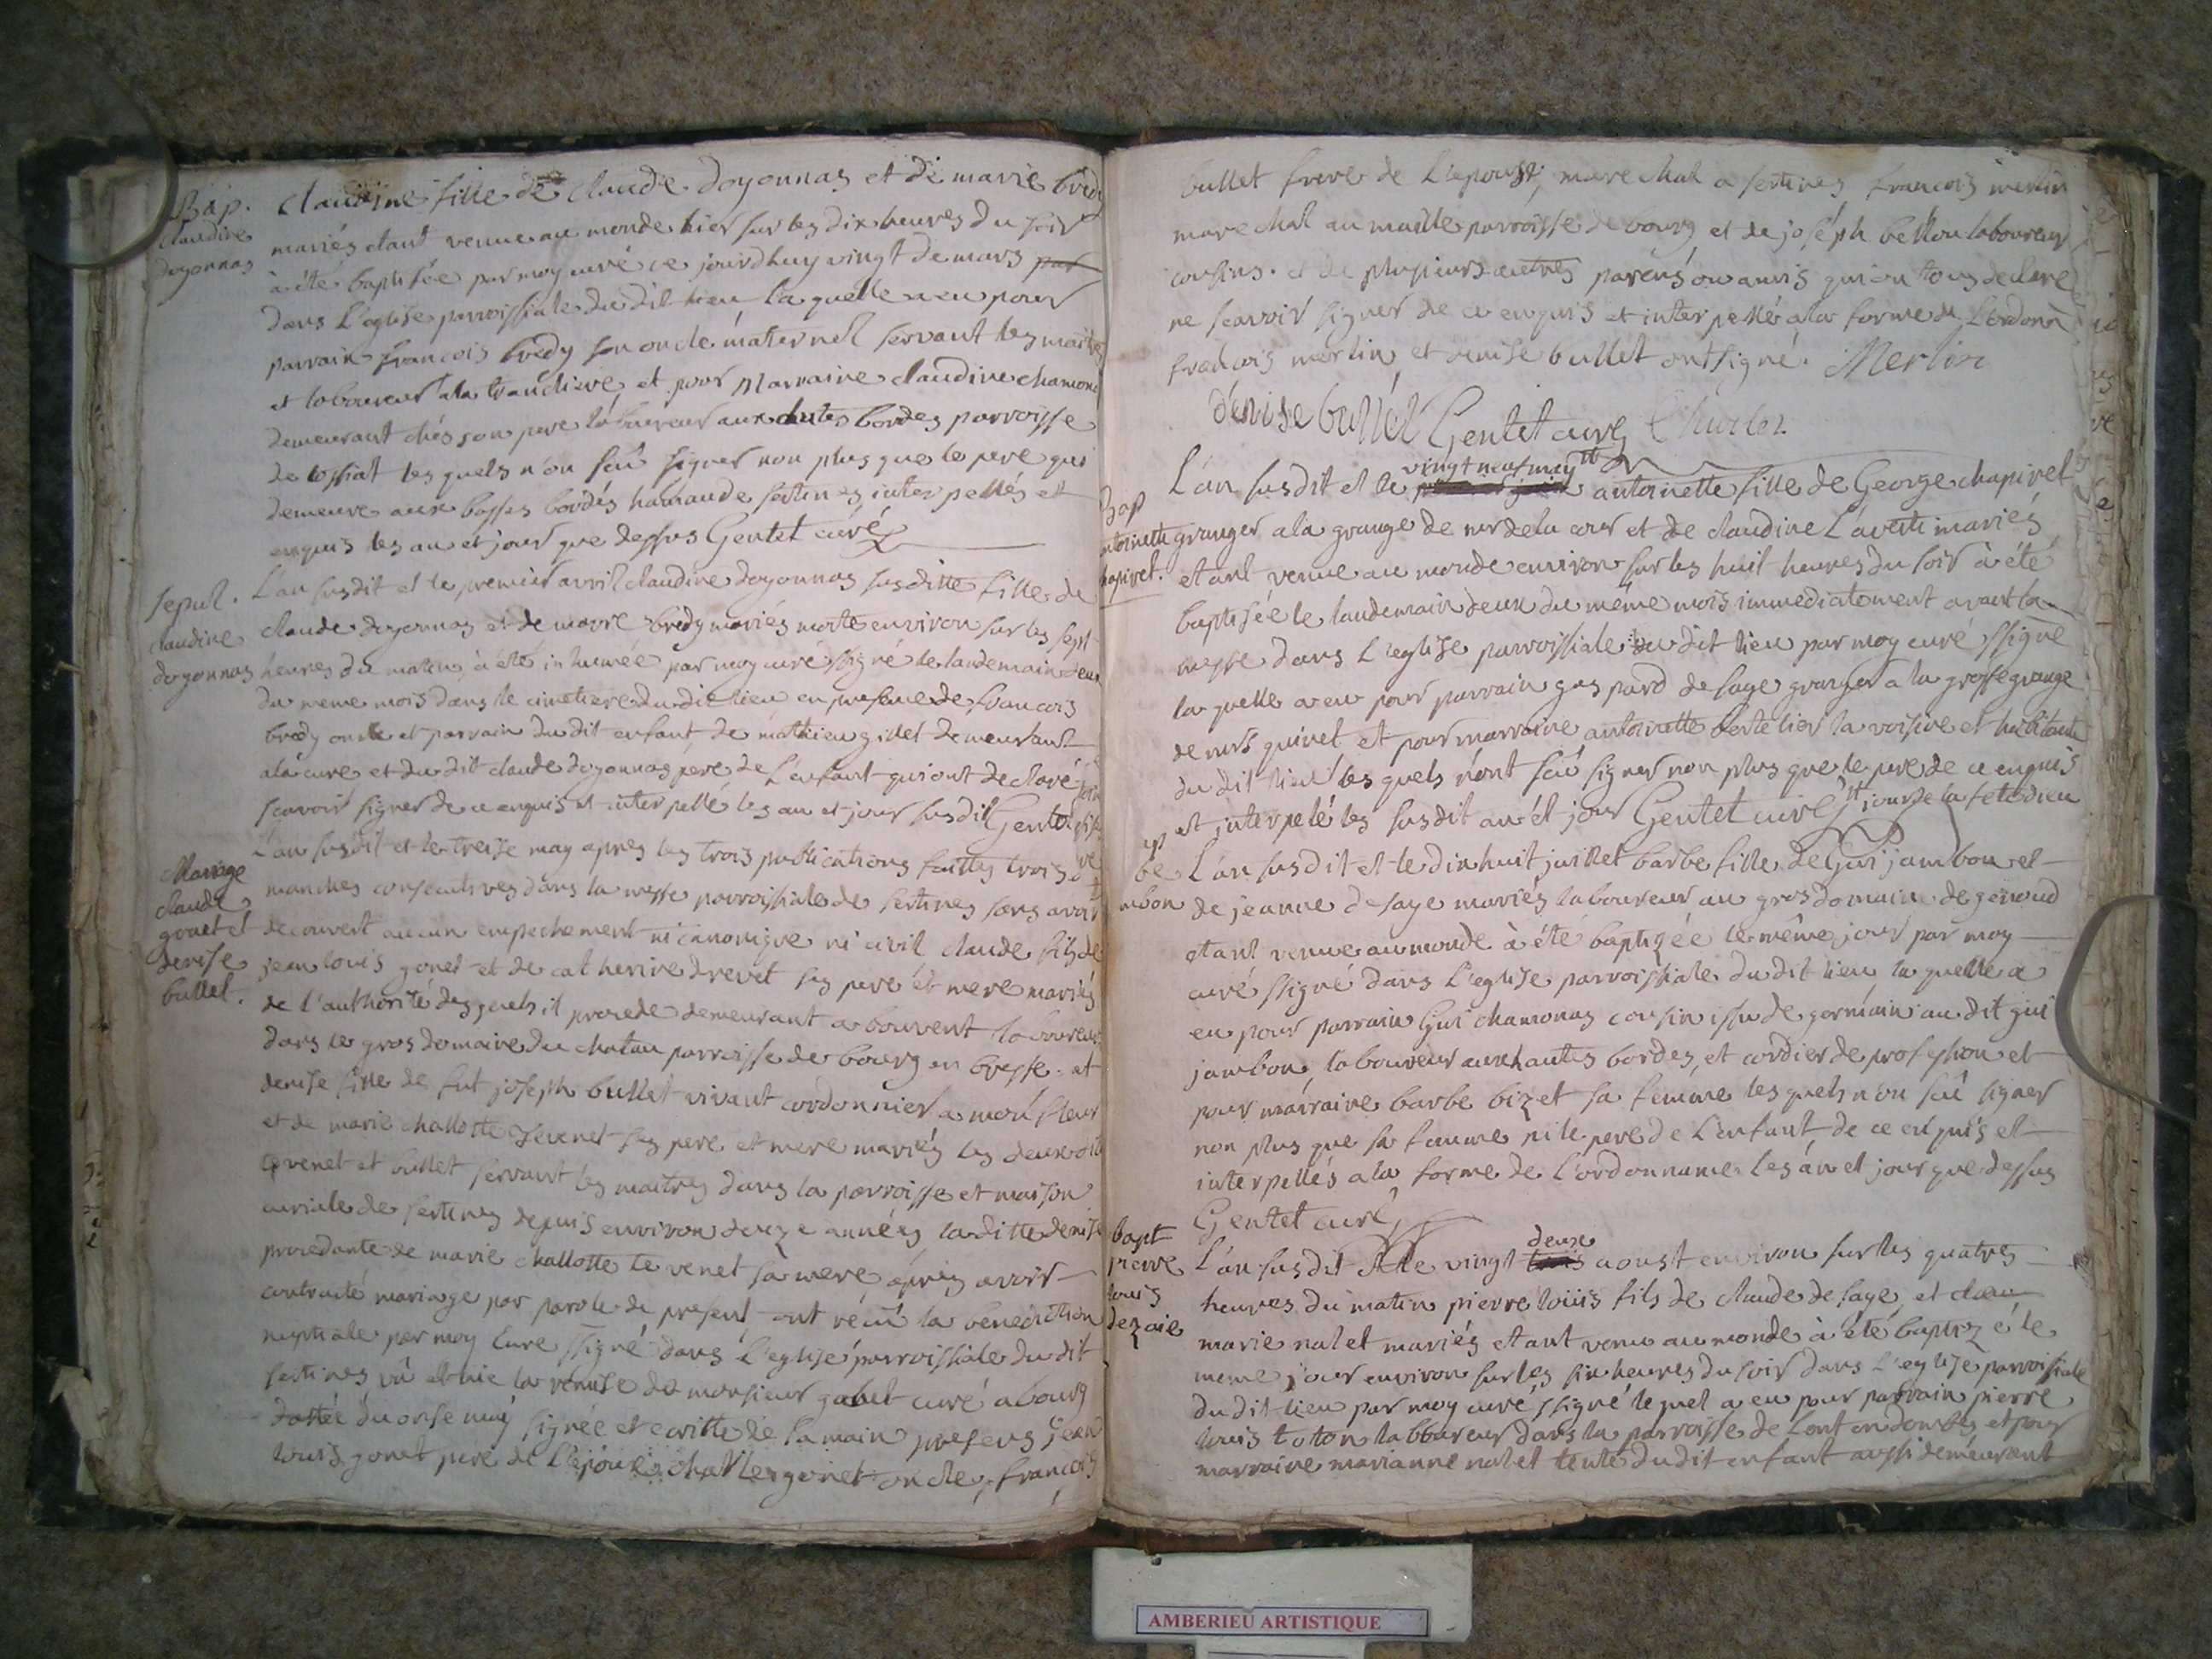 Bap.
claudine
doyonnas
claudine fille de claude doyonnas et de marie bredy
mariés etant venue au monde hier sur les dix heures du soir
à été baptisée par moy curé ce jourdhuy vingt de mars par
dans l'eglise parroissiale du dit lieu la quelle a eu pour
parrain francois bredy son oncle maternel servant les maitres
et laboureur a la tranchere et pour marraine claudine chamona
demeurant chés son pere laboureur aux hutes bordes parroisse
de tossiat les quels n'on scû signer non plus que le pere qui
demeure aux basses bordes hamau de sertines interpellés et
enquis les an et jour que dessus Gentet curé
sepul.
claudine
doyonnas
L'an susdit et le premier avril claudine doyonnas susditte fille de
claude doyonnas et de marie bredy mariés morte environ sur les sept
heures du matin, à été inhumée par moy curé ssigné le landemain deux
du meme mois dans le cimetiere du dit lieu en presence de francois
bredy oncle et parrain du dit enfant, de mathieu gillet demeurant
a la cure et du dit claude doyonnas pere de l'enfant qui ont declaré
scavoir signer de ce enquis et interpellé les an et jour susdit Gentet
Mariage
claude
gonet et
denise
bullet.
L'an susdit et le treise may apres les trois publications faittes trois di
manches consecutives dans la messe parroissiale de sertines sans avoir
decouvert aucun empechement ni canonique ni civil claude fils de
jean louis gonet et de catherine drevet ses pere et mere mariés
de l'authorité desquels il procede demeurant a bouvent laboureur
dans le gros domaine du chatau parroisse de bourg en bresse. et
denise fille de fut joseph bullet vivant cordonnier a
et de marie challotte tevenet ses pere et mere mariés les deux
tevenet et bullet servant les maitres dans la parroisse et maison
curiale de sertines depuis environ douze années laditte denise
procedante de marie challotte tevenet sa mere, après avoir
contracté mariage par parole de present, ont récû la benediction
nuptiale par moy curé ssigné dans l'eglise parroissiale du dit
sertines vû et la remise de monsieur gabet curé a bourg
dattée du onse may signée et ecritte de sa main presens jean
louis gonet pere de l'epoux, charles gonet oncle, francois
bullet frere de l'epouse, marechal a sertines francois merlin
marechal au maille parroisse de bourg et de joséph bellou laboureur
cousins. et de plusieurs autres parens ou amis qui on tous declare
ne scavoir signer de ce enquis et interpellé a la forme de l'ordonn
francois merlin et denise bullet ont signé. Merlin
denise bullet Gentet curé
Bap
antoinette
chapivet.
vingt neuf may
L'an susdit et le antoinette fille de George chapivet
granger a la grange de mr de la cour et de claudine l'averti mariés
etant venue au monde environ sur les huit heures du soir à été
baptisée le landemain deux du même mois immediatement avant la
messe dans l'eglise parroissiale du dit lieu par moy curé ssigné
la quelle a eu pour parrain gaspard desaye granger a la grosse grange
de mrs quinet et pour marraine antoinette bertelier la voisine et habitante
du dit lieu les quels n'ont scû signer non plus que le pere de ce enquis
et interpelé les susdit an et jour Gentet curé jour de la fete dieu
ap
be
mbon
L'an susdit et le dixhuit juillet barbe fille de Gui jambon et
de jeanne desaye mariés laboureur au gros domaine de genoud
etant venue au monde à été baptizée le même jour par moy
curé ssigné dans l'eglise parroissiale du dit lieu la quelle a
eu pour parrain Gui chamonas cousin issu de germain au dit gui
jambon, laboureur aux hautes bordes, et cordier de profession et
pour marraine barbe bizet sa femme les quels n'on scû signer
non plus que sa femme ni le pere de l'enfant de ce enquis et
interpellés a la forme de l'ordonnance les an et jour que dessus
Gentet curé
bapt
pierre
louis
dezaie
deux
L'an susdit et le vingt trois aoust environ sur les quatres
heures du matin pierre loüis fils de claude desaye et
marie nalet mariés etant venu au monde à été baptizé le
meme jour environ sur les six heures du soir dans l'eglise parroissiale
du dit lieu par moy curé ssigné le quel a eu pour parrain pierre
louis toton laboureur dans la parroisse de lent en dombes, et pour
marraine marianne nalet tente dudit enfant aussi demeurant
AMBERIEU ARTISTIQUE